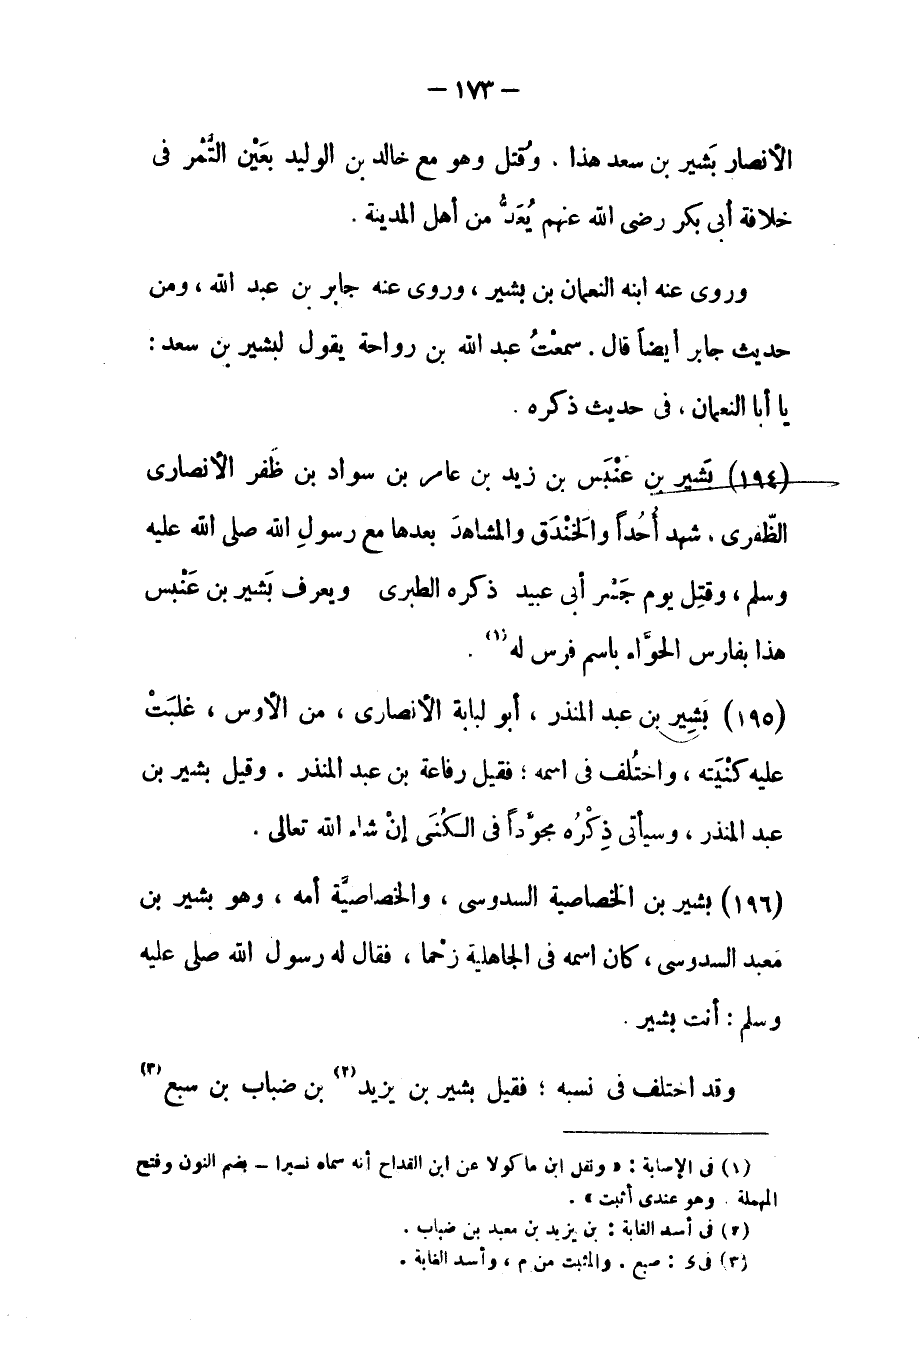 — ١٧٣ —
الأنصار بَشير بن سعد هذا . وقُتل وهو مع خالد بن الوليد بعَيْن التَّمْر فى
خلافة أبى بكر رضى الله عنهم يُعَدُّ من أهل المدينة .
وروى عنه ابنه النعمان بن بشير ، وروى عنه جابر بن عبد الله ، ومن
حديث جابر أيضاً قال . سمعْتُ عبد الله بن رواحة يقول لبشير بن سعد :
يا أبا النعمان ، فى حديث ذكره .
(١٩٤) بَشير بن عَنْبَس بن زيد بن عامر بن سواد بن ظَفر الأنصارى
الظّفرى ، شهد أُحُداً والَخنْدَق والمشاهدَ بعدها مع رسولِ الله صلى الله عليه
وسلم ، وقتِل يوم جَسْر أبى عبيد ذكره الطبرى ويعرف بَشير بن عَنْبس
هذا بفارس الحوَّاء باسم فرس له(١) .
(١٩٥) بَشِير بن عبد المنذر ، أبو لبابة الأنصارى ، من الأوس ، غلبَتْ
عليه كنْيَته ، واختُلف فى اسمه ؛ فقيل رفاعة بن عبد المنذر . وقيل بشير بن
عبد المنذر ، وسيأتى ذِكْرُه مجوَّداً فى الكُنَى إنْ شاء الله تعالى .
(١٩٦) بشير بن الَخصاصية السدوسى ، والخصاصيَّة أمه ، وهو بشير بن
مَعبد السدوسى ، كان اسمه فى الجاهلية زحْما ، فقال له رسول الله صلى عليه
وسلم : أنت بشير .
وقد اختلف فى نسبه ؛ فقيل بشير بن يزيد(٢) بن ضباب بن سبع(٣)
(١) فى الإصابة : « ونقل ابن ماكولا عن ابن القداح أنه سماه نسيرا – بضم النون وفتح
المهملة . وهو عندى أثبت » .
(٢) فى أسد الغابة : بن يزيد بن معبد بن ضباب .
(٣) فى ى : صبع . والمثبت من م ، وأسد الغابة .